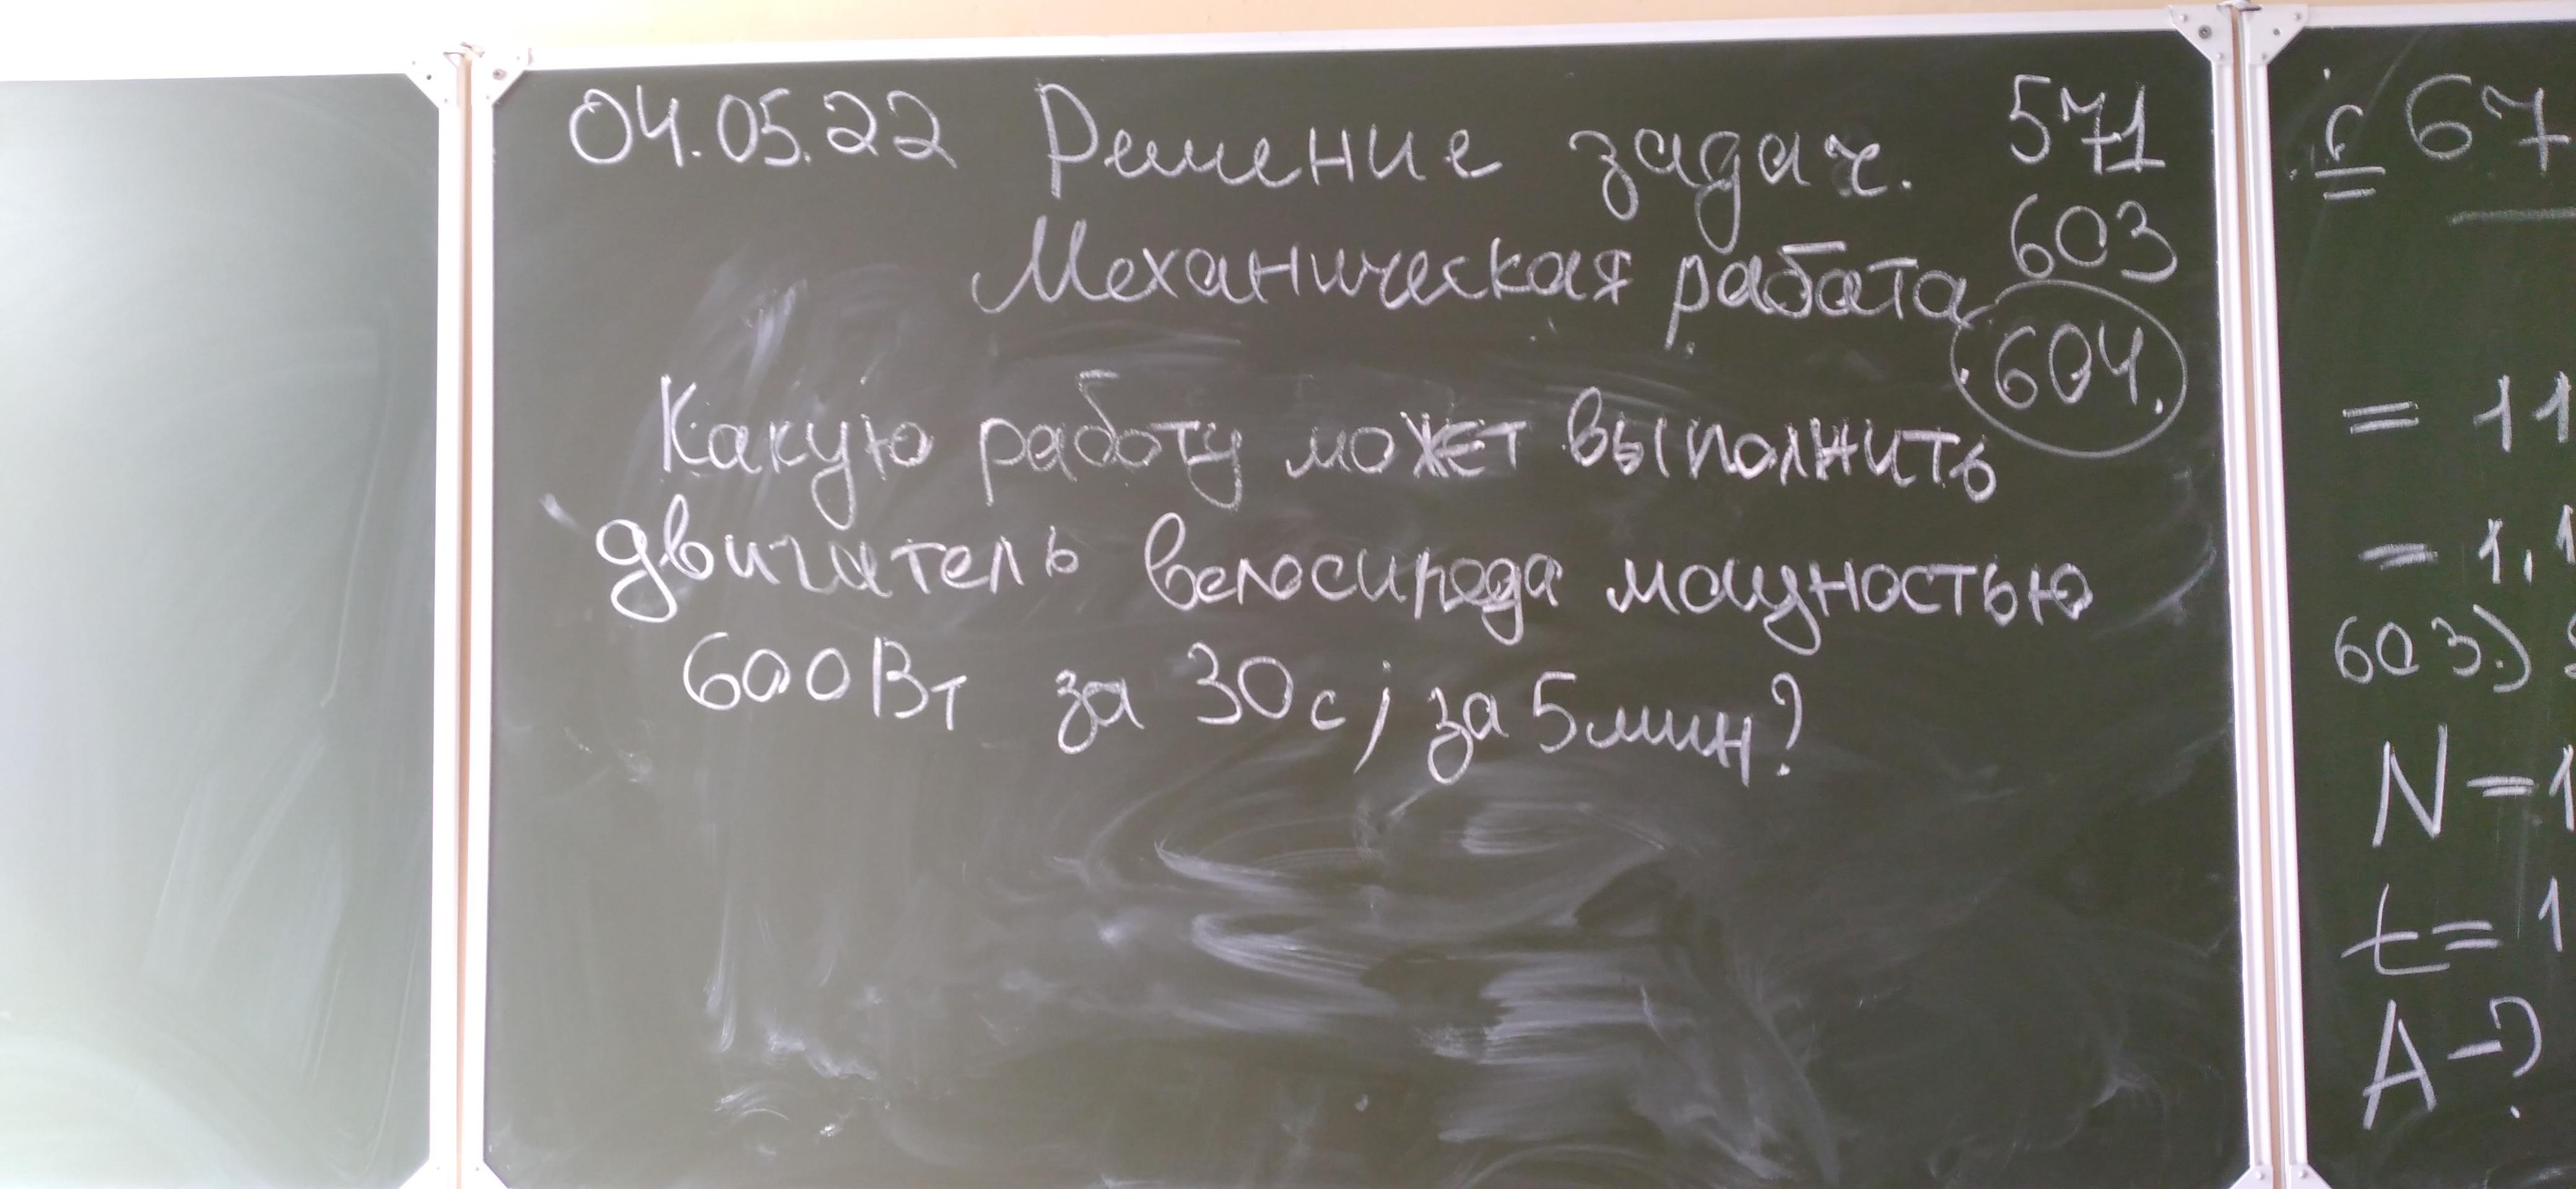 04.05.22 Решение задач. 571
603
Механическая работа
604.
Какую работу может выполнить
двигатель велосипеда мощностью
600Вт за 30с; за 5мин?
с 67
= 11
= 1,1
603.)
N=1
t=1
A-?